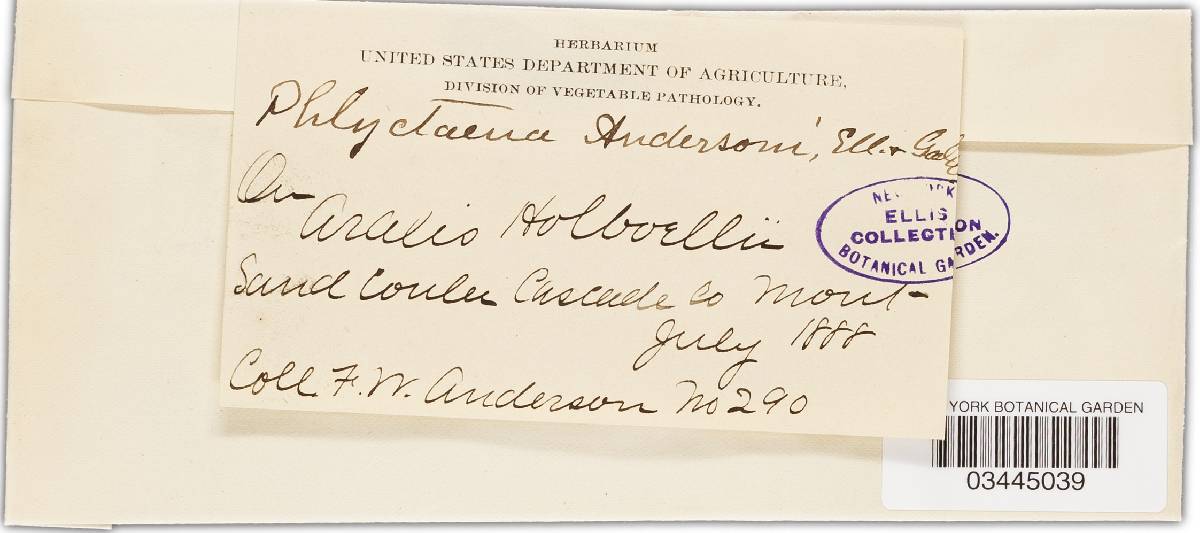 HERBARIUM
UNITED STATES DEPARTMENT OF AGRICULTURE,
DIVISION OF VEGETABLE PATHOLOGY.
Phlyctaena Andersoni, Ell. &
On
Arabis Holboellii
Sand Coulee Cascade Co Mont-
July 1888
Coll. F. W. Anderson No 290
ELLIS
COLLECTION
BOTANICAL GARDEN.
YORK BOTANICAL GARDEN
03445039